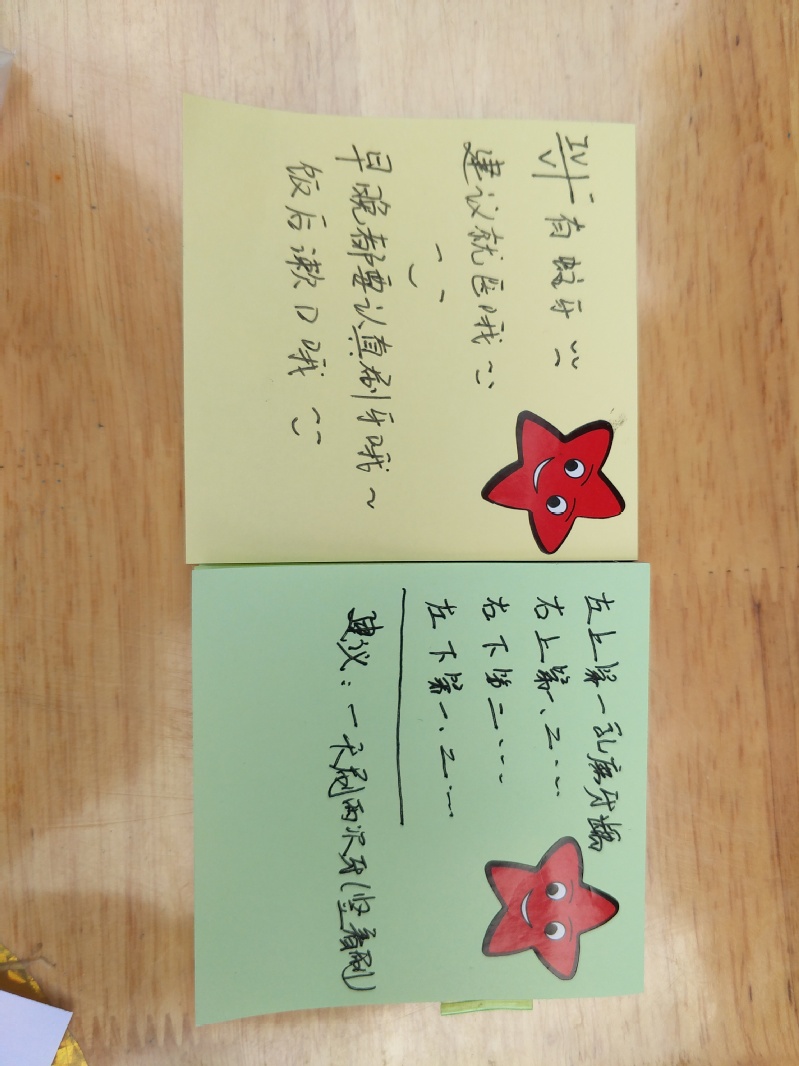 有蛀牙
建议就医哦
早晚都要认真刷牙哦~
饭后漱口哦
左上第一乳磨牙龋
右上第一、二....
右下第二....
左下第一、二....
建议：一天刷两次牙(竖着刷)